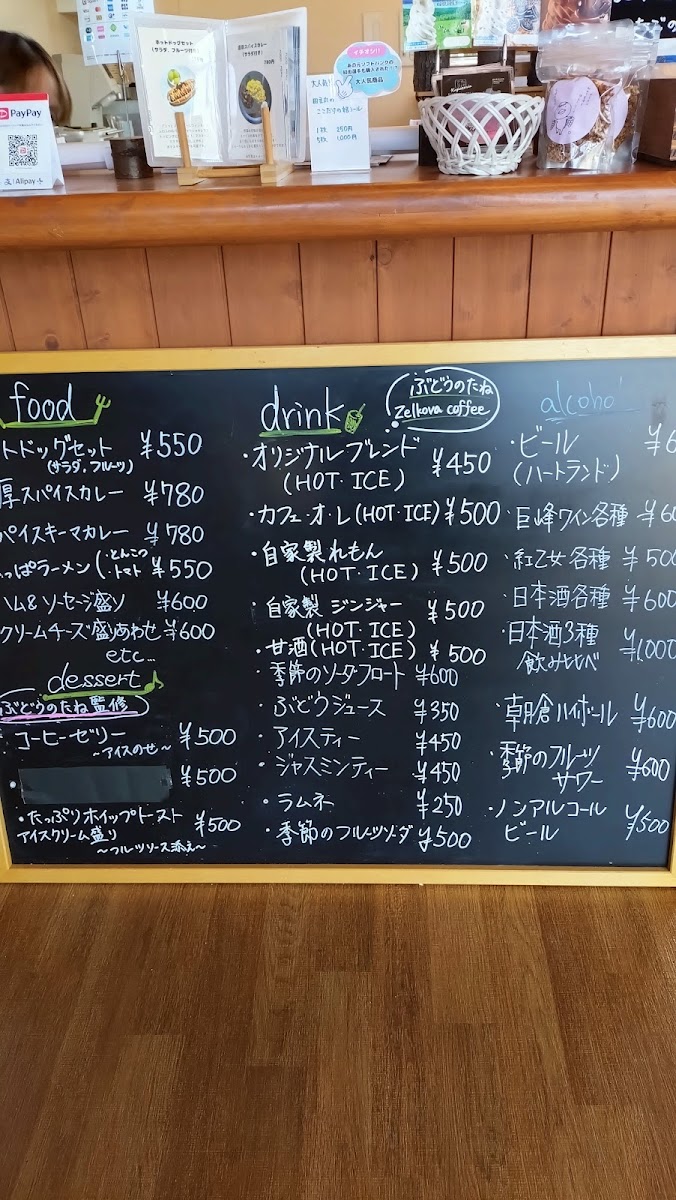 PayPay
Alipay+
ホットドッグセット
(サラダ、フルーツ付き)
(サラダ付き)
780円
大人気!
1枚 250円
5枚 1,000円
イチオシ!!
大人気商品
food
トドッグセット ¥550
(サラダ、フルーツ)
厚スパイスカレー ¥780
パイスキーマカレー ¥780
っぱラーメン(・とんこつ ・トマト ¥550
ハム&ソーセージ盛り ¥600
クリームチーズ盛りあわせ ¥600
etc...
dessert
ぶどうのたね監修
コーヒーゼリー ¥500
~アイスのせ~
・ ¥500
・たっぷりホイップトースト ¥500
アイスクリーム盛り
~フルーツソース添え~
drink
ぶどうのたね
Zelkova coffee
・オリジナルブレンド ¥450
(HOT・ICE)
・カフェ・オ・レ(HOT・ICE) ¥500
・自家製れもん ¥500
(HOT・ICE)
・自家製ジンジャー ¥500
(HOT・ICE)
・甘酒(HOT・ICE) ¥500
・季節のソーダフロート ¥600
・ぶどうジュース ¥350
・アイスティー ¥450
・ジャスミンティー ¥450
・ラムネ ¥250
・季節のフルーツソーダ ¥500
alcohol
・ビール ¥6
(ハートランド)
・巨峰ワイン各種 ¥60
・紅乙女各種 ¥500
・日本酒各種 ¥600
・日本酒3種 ¥1000
飲み比べ
・朝倉ハイボール ¥600
・季節のフルーツ ¥600
サワー
・ノンアルコール ¥500
ビール